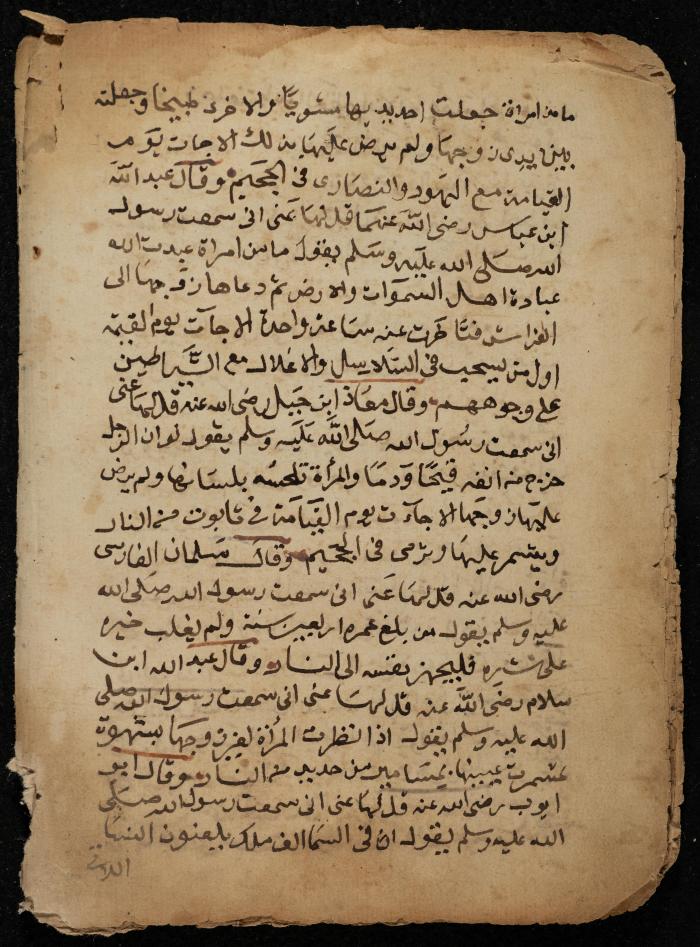 ما من امراة جعلت احد يديها مشويا والاخرى طبيخا وجعلته
بين يدي زوجها ولم يرض عليها من ذلك الا جات يوم
القيامة مع اليهود والنصارى في الجحيم وقال عبد الله
ابن عباس رضى الله عنهما قل لها عني اني سمعت رسول
الله صلى الله عليه وسلم يقول ما من امراة عبدت الله
عبادة اهل السموات والارض ثم دعاها زوجها الى
الفراش فتاخرت عنه ساعة واحدة الا جآت يوم القيمة
اول من يسحب في السلاسل والاغلال مع الشياطين
على وجوههم وقال معاذ ابن جبل رضى الله عنه قل لها عني
اني سمعت رسول الله صلى الله عليه وسلم يقول لو ان الرجل
خرج من انفه قيحا ودما والمرأة تلحسه بلسانها ولم يرض
عليها زوجها الا جآت يوم القيامة في تابوت من النار
ويسمر عليها وترمى في الجحيم وقال سلمان الفارسى
رضى الله عنه قل لها عني اني سمعت رسول الله صلى الله
عليه وسلم يقول من بلغ عمره اربعين سنة ولم يغلب خيره
على شره فليجهز بنفسه الى النار وقال عبد الله ابن
سلام رضى الله عنه قل لها عني اني سمعت رسول الله صلى
الله عليه وسلم يقول اذا نظرت المرأة لغير زوجها بشهوة
سمرت عينيها بمسامير من حديد من النار وقال ابو
ايوب رضى الله عنه قل لها عني اني سمعت رسول الله صلى
الله عليه وسلم يقول ان في السما الف ملك يلعنون النسا